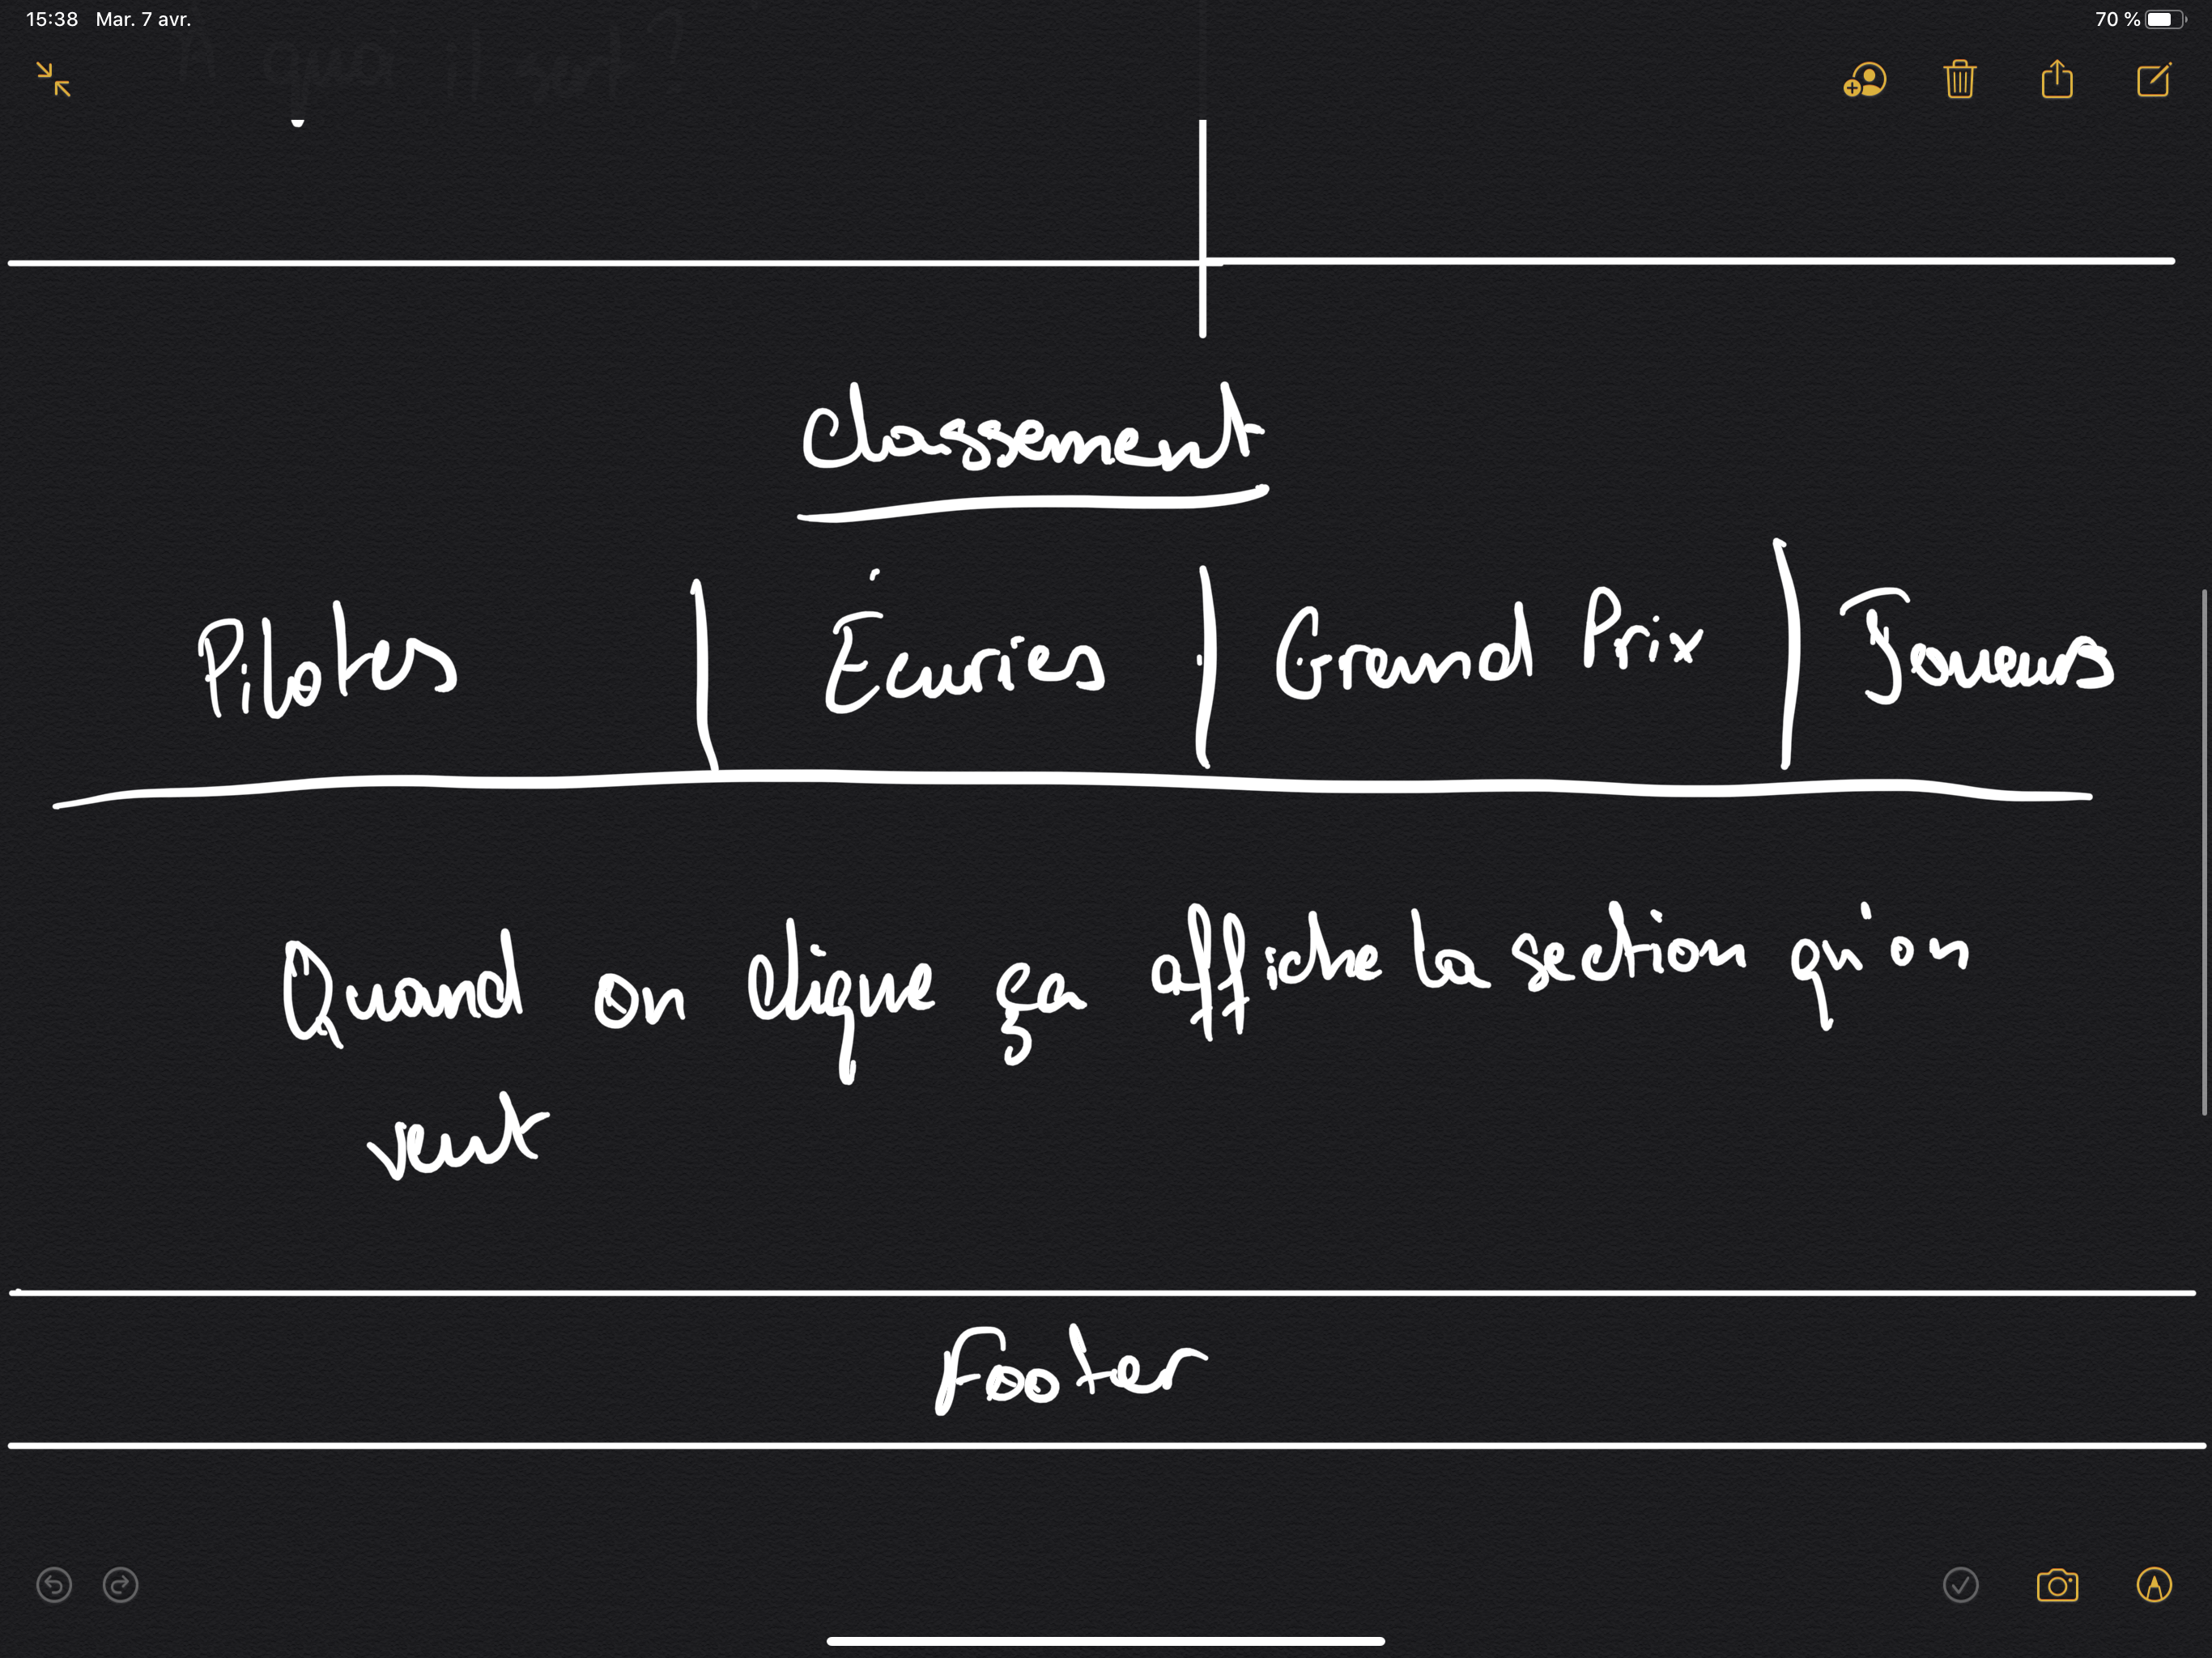 15:38 Mar. 7 avr. 70 %
A quoi il sert?
Classement
Pilotes | Écuries | Grand Prix | Joueurs
Quand on clique ça affiche la section qu'on
veut
Footer